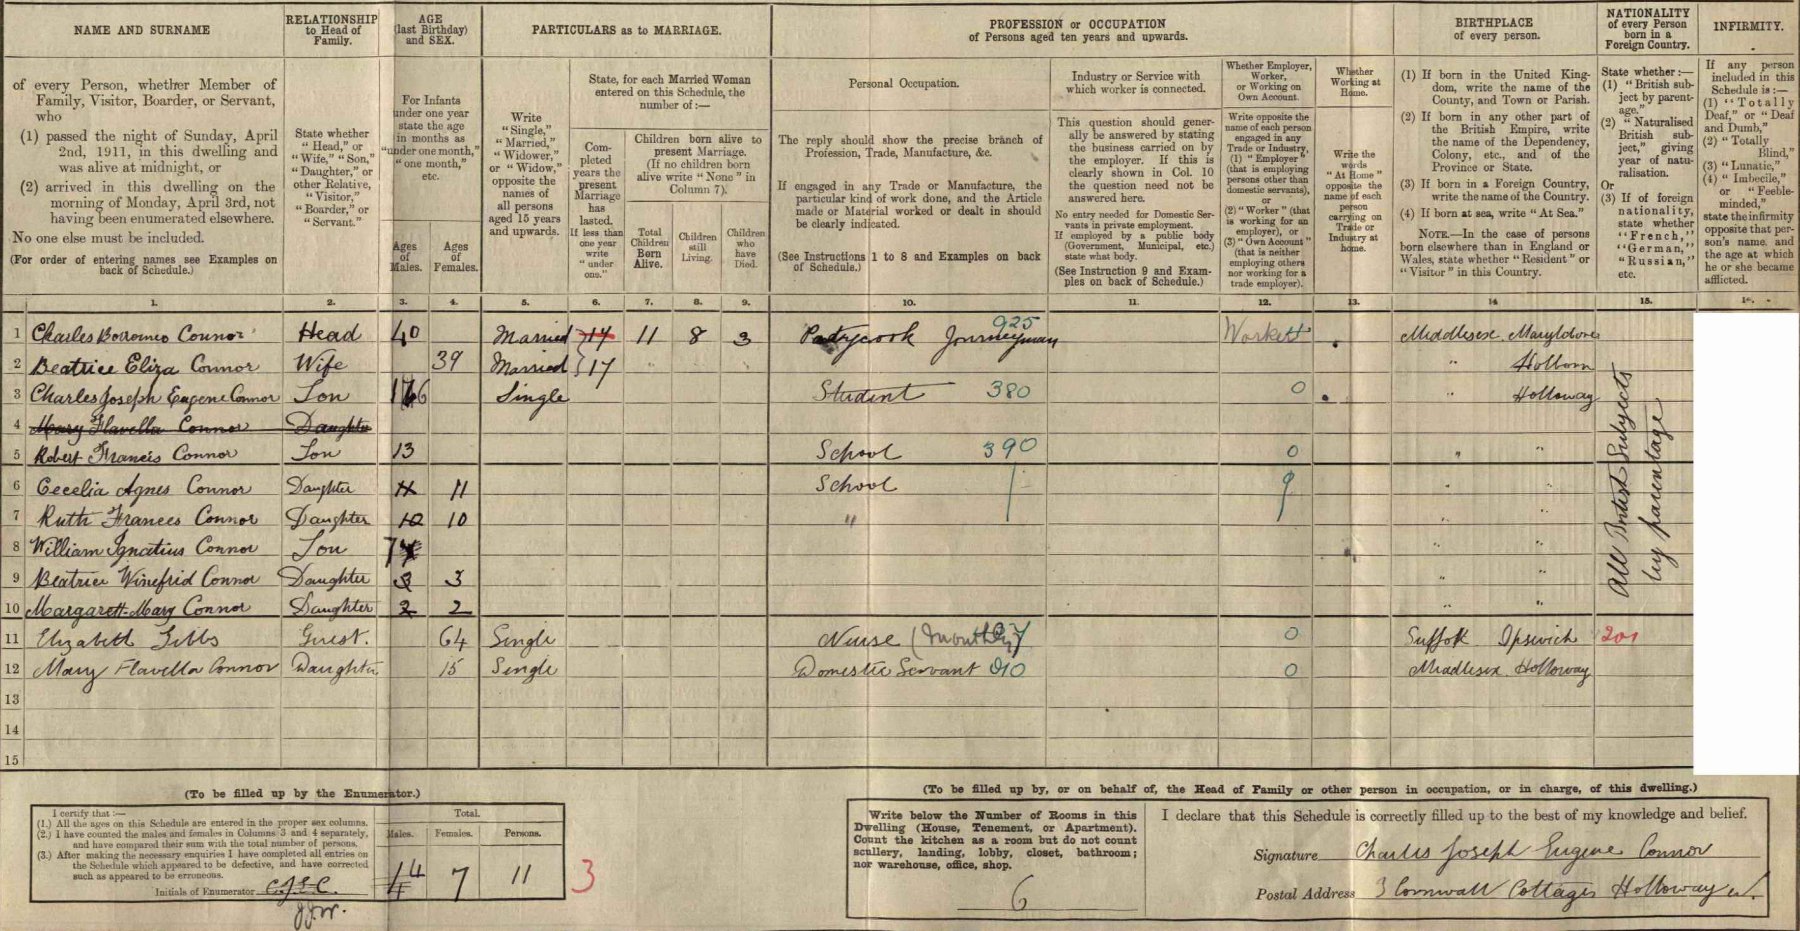 NAME AND SURNAME
of every Person, whether Member of
Family, Visitor, Boarder, or Servant,
who
(1) passed the night of Sunday, April
2nd, 1911, in this dwelling and
was alive at midnight, or
(2) arrived in this dwelling on the
morning of Monday, April 3rd, not
having been enumerated elsewhere.
No one else must be included.
(For order of entering names see Examples on
back of Schedule.)
RELATIONSHIP
to Head of
Family.
State whether
"Head," or
"Wife," "Son,"
"Daughter," or
other Relative,
"Visitor,"
"Boarder," or
"Servant."
AGE
(last Birthday)
and SEX.
For Infants
under one year
state the age
in months as
"under one month,"
"one month,"
etc.
Ages
of
Males.
Ages
of
Females.
PARTICULARS as to MARRIAGE.
Write
"Single,"
"Married,"
"Widower,"
or "Widow,"
opposite the
names of
all persons
aged 15 years
and upwards.
State, for each Married Woman
entered on this Schedule, the
number of:—
Com-
pleted
years the
present
Marriage
has
lasted.
If less than
one year
write
"under
one."
Children born alive to
present Marriage.
(If no children born
alive write "None" in
Column 7).
Total
Children
Born
Alive.
Children
still
Living.
Children
who
have
Died.
PROFESSION or OCCUPATION
of Persons aged ten years and upwards.
Personal Occupation.
The reply should show the precise branch of
Profession, Trade, Manufacture, &c.
If engaged in any Trade or Manufacture, the
particular kind of work done, and the Article
made or Material worked or dealt in should
be clearly indicated.
(See Instructions 1 to 8 and Examples on back
of Schedule.)
Industry or Service with
which worker is connected.
This question should gener-
ally be answered by stating
the business carried on by
the employer. If this is
clearly shown in Col. 10
the question need not be
answered here.
No entry needed for Domestic Ser-
vants in private employment.
If employed by a public body
(Government, Municipal, etc.)
state what body.
(See Instruction 9 and Exam-
ples on back of Schedule.)
Whether Employer,
Worker,
or Working on
Own Account.
Write opposite the
name of each person
engaged in any
Trade or Industry,
(1) "Employer"
(that is employing
persons other than
domestic servants),
or
(2) "Worker" (that
is working for an
employer), or
(3) "Own Account"
(that is neither
employing others
nor working for a
trade employer).
Whether
Working at
Home.
Write the
words
"At Home"
opposite the
name of each
person
carrying on
Trade or
Industry at
home.
BIRTHPLACE
of every person.
(1) If born in the United King-
dom, write the name of the
County, and Town or Parish.
(2) If born in any other part of
the British Empire, write
the name of the Dependency,
Colony, etc., and of the
Province or State.
(3) If born in a Foreign Country,
write the name of the Country.
(4) If born at sea, write "At Sea."
NOTE.—In the case of persons
born elsewhere than in England or
Wales, state whether "Resident" or
"Visitor" in this Country.
NATIONALITY
of every Person
born in a
Foreign Country.
State whether:—
(1) "British sub-
ject by parent-
age."
(2) "Naturalised
British sub-
ject," giving
year of natu-
ralisation.
Or
(3) If of foreign
nationality,
state whether
"French,"
"German,"
"Russian,"
etc.
INFIRMITY.
If any person
included in this
Schedule is:—
(1) "Totally
Deaf," or "Deaf
and Dumb,"
(2) "Totally
Blind,"
(3) "Lunatic,"
(4) "Imbecile,"
or "Feeble-
minded,"
state the infirmity
opposite that per-
son's name, and
the age at which
he or she became
afflicted.
1. 2. 3. 4. 5. 6. 7. 8. 9. 10. 11. 12. 13. 14 15.
1 Charles Borromeo Connor Head 40 Married 14 11 8 3 Pastrycook Journeyman 925 Middlesex Marylebone
2 Beatrice Eliza Connor Wife 39 Married 17 " Holborn
3 Charles Joseph Eugene Connor Son 16 Single Student 380 0 " Holloway
4 Mary Flavella Connor Daughter
5 Robert Francis Connor Son 13 School 390 0 " "
6 Cecelia Agnes Connor Daughter 11 11 School " "
7 Ruth Frances Connor Daughter 10 10 " " "
8 William Ignatius Connor Son 7 " "
9 Beatrice Winefrid Connor Daughter 3 3 " "
10 Margarett Mary Connor Daughter 2 2 " "
11 Elizabeth Gibbs Guest. 64 Single Nurse (Monthly) 0 Suffolk Ipswich 201
12 Mary Flavella Connor Daughter 15 Single Domestic Servant 010 0 Middlesex Holloway
13
14
15
All British Subjects
by parentage
(To be filled up by the Enumerator.)
I certify that:—
(1.) All the ages on this Schedule are entered in the proper sex columns.
(2.) I have counted the males and females in Columns 3 and 4 separately,
and have compared their sum with the total number of persons.
(3.) After making the necessary enquiries I have completed all entries on
the Schedule which appeared to be defective, and have corrected
such as appeared to be erroneous.
Initials of Enumerator C.J.E.C.
J.J.W.
Total.
Males. Females. Persons.
4 7 11
3
(To be filled up by, or on behalf of, the Head of Family or other person in occupation, or in charge, of this dwelling.)
Write below the Number of Rooms in this
Dwelling (House, Tenement, or Apartment).
Count the kitchen as a room but do not count
scullery, landing, lobby, closet, bathroom;
nor warehouse, office, shop.
6
I declare that this Schedule is correctly filled up to the best of my knowledge and belief.
Signature Charles Joseph Eugene Connor
Postal Address 3 Cornwall Cottages Holloway N.